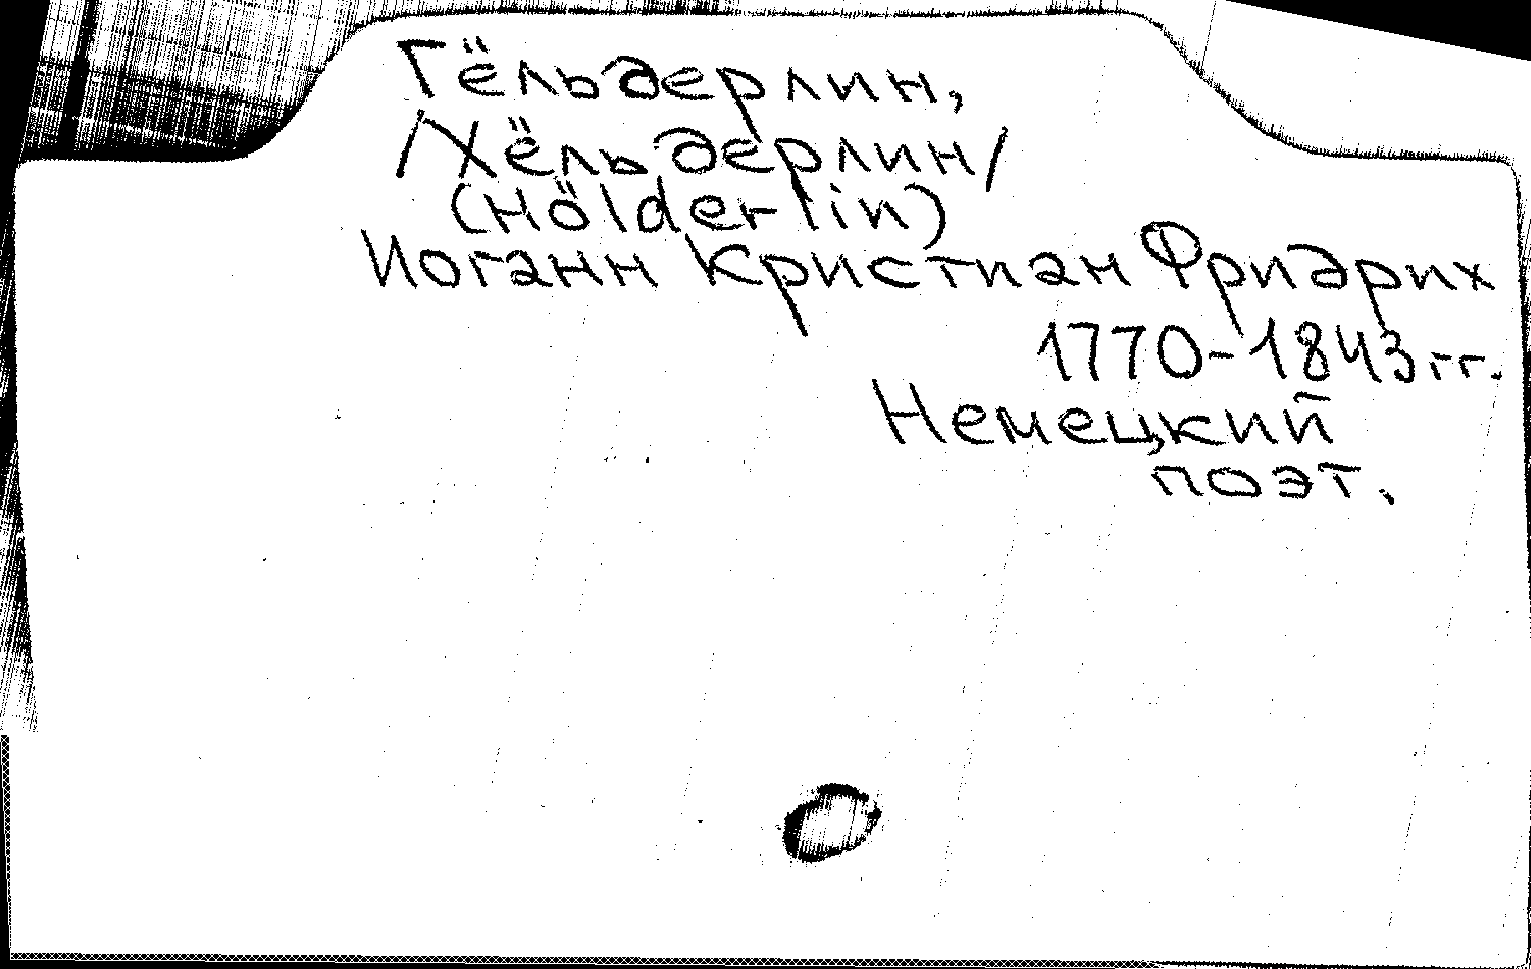 Гёльдерлин,
/Хёльдерлин/
(Hölderlin)
Иоганн Кристиан Фридрих
1770-1843 гг.
Немецкий
поэт.